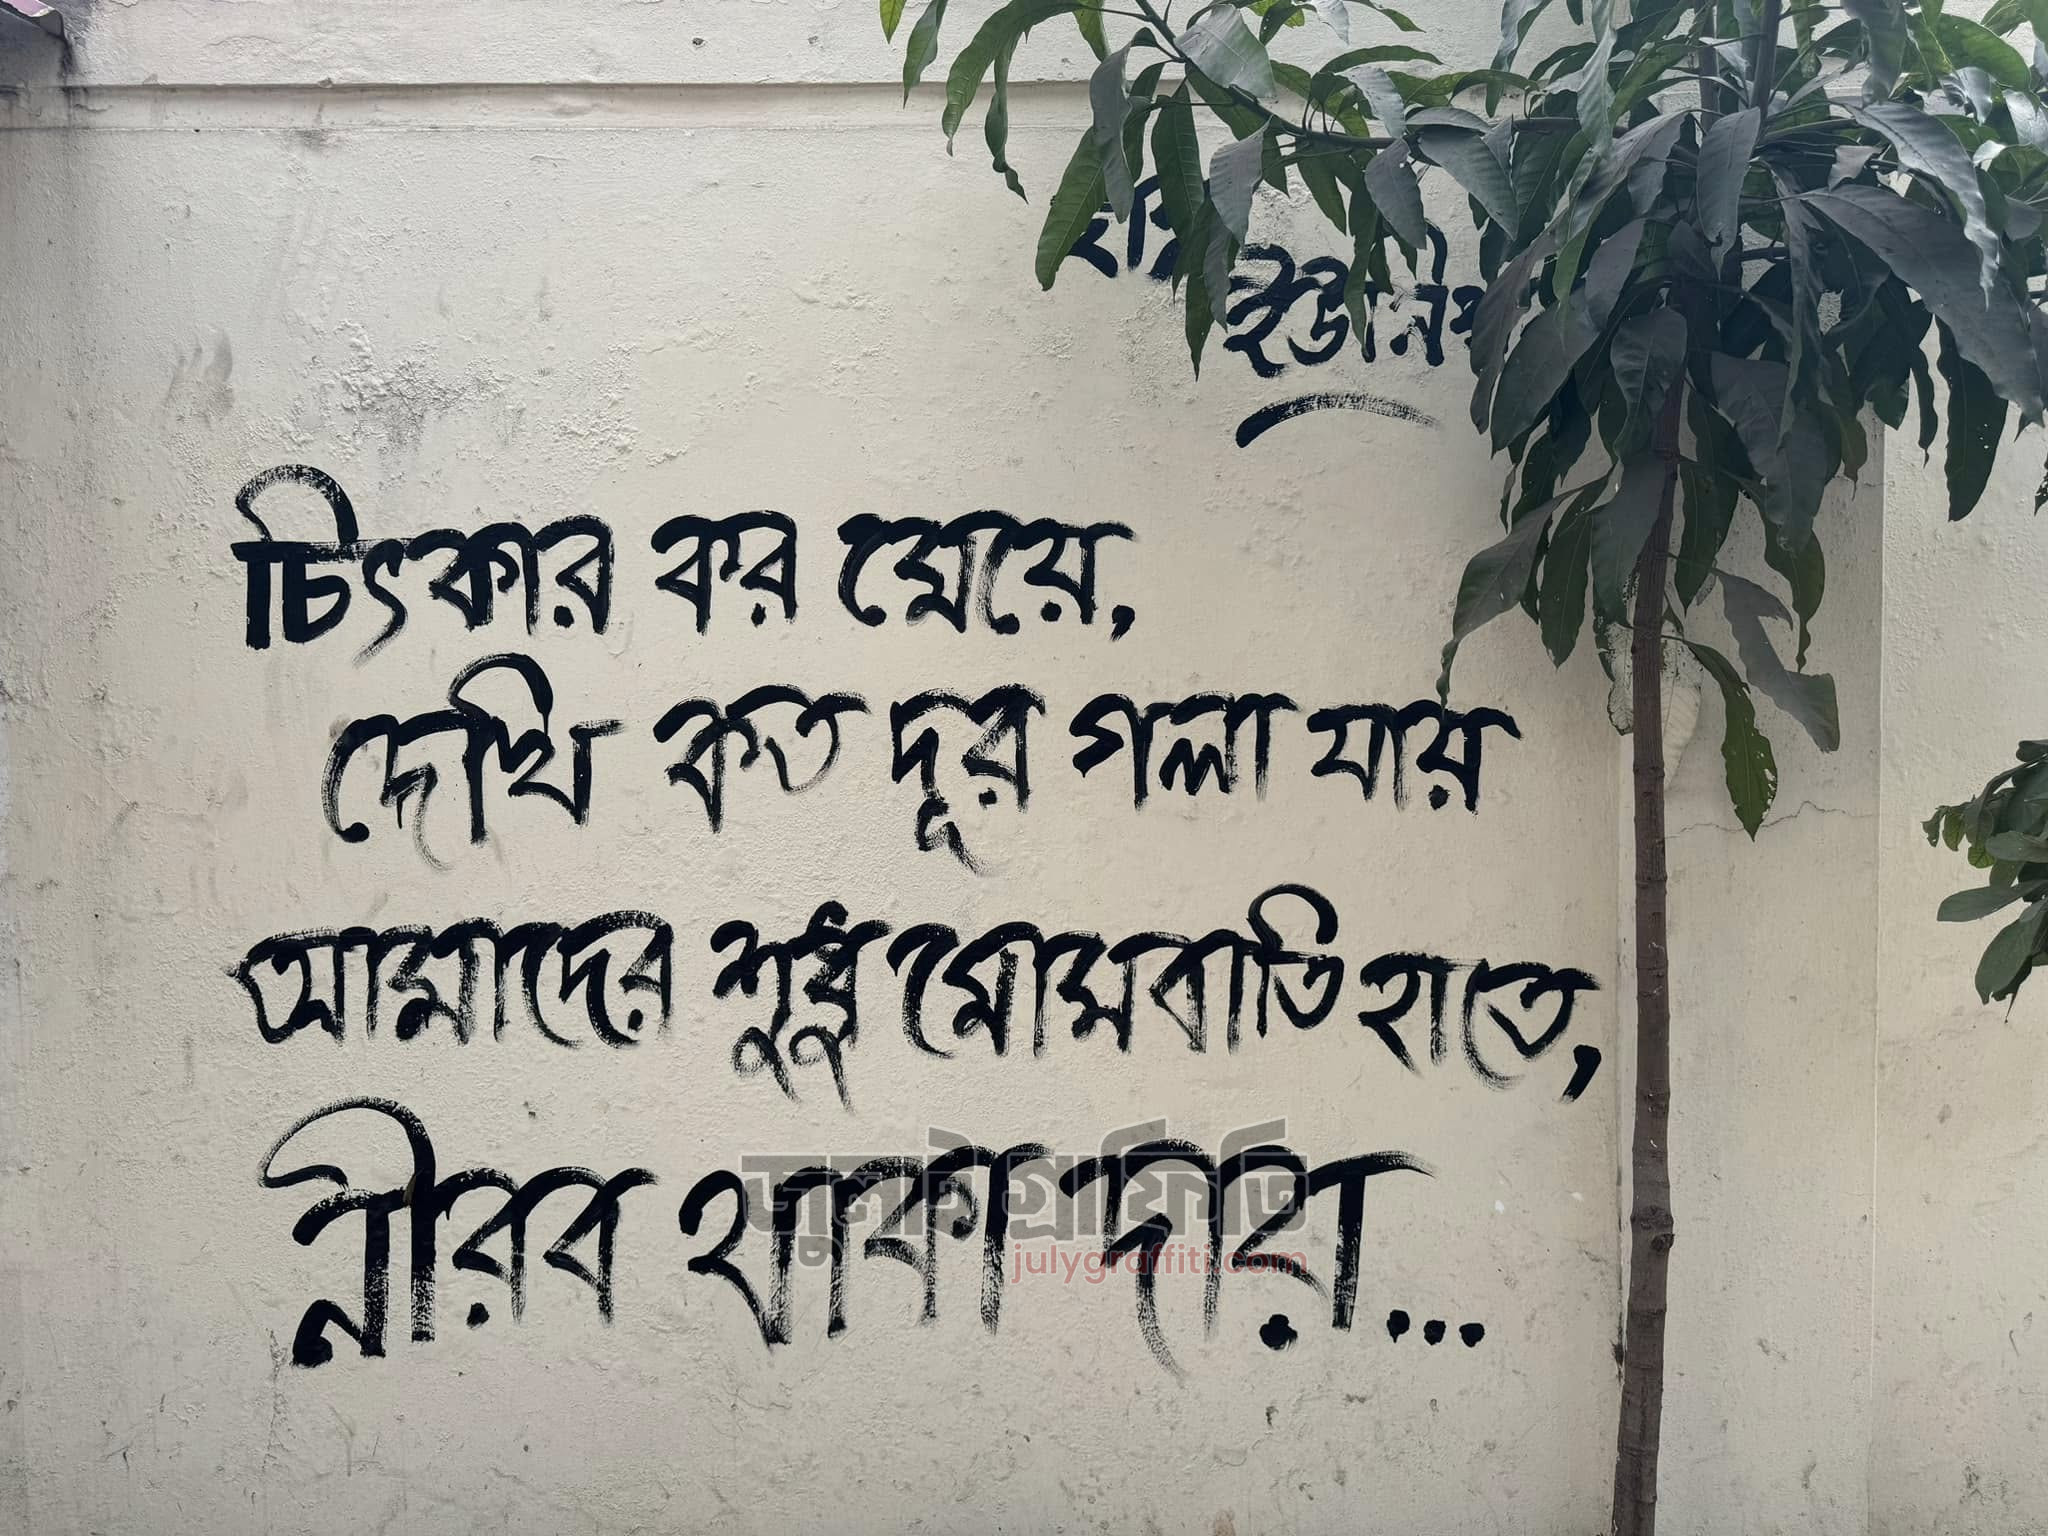 চিৎকার কর মেয়ে,
দেখি কত দূর গলা যায়
আমাদের শুধু মোমবাতি হাতে,
নীরব থাকা দায়...
জুলাই গ্রাফিতি
julygraffiti.com